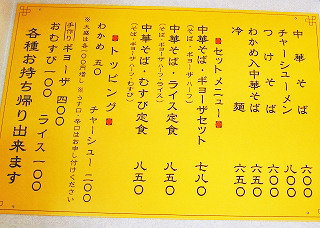 中華そば 六〇〇
チャーシューメン 八〇〇
つけそば 六〇〇
わかめ入中華そば 六五〇
冷麺 六五〇
セットメニュー
中華そば・ギョーザセット 七八〇
(そば・ギョーザハーフ)
中華そば・ライス定食 八五〇
(そば・ギョーザハーフ・ライス)
中華そば・むすび定食 八五〇
(そば・ギョーザハーフ・むすび)
トッピング
わかめ 五〇 チャーシュー 二〇〇
手作り ギョーザ 四〇〇
おむすび 一〇〇 ライス 一〇〇
各種お持ち帰り出来ます